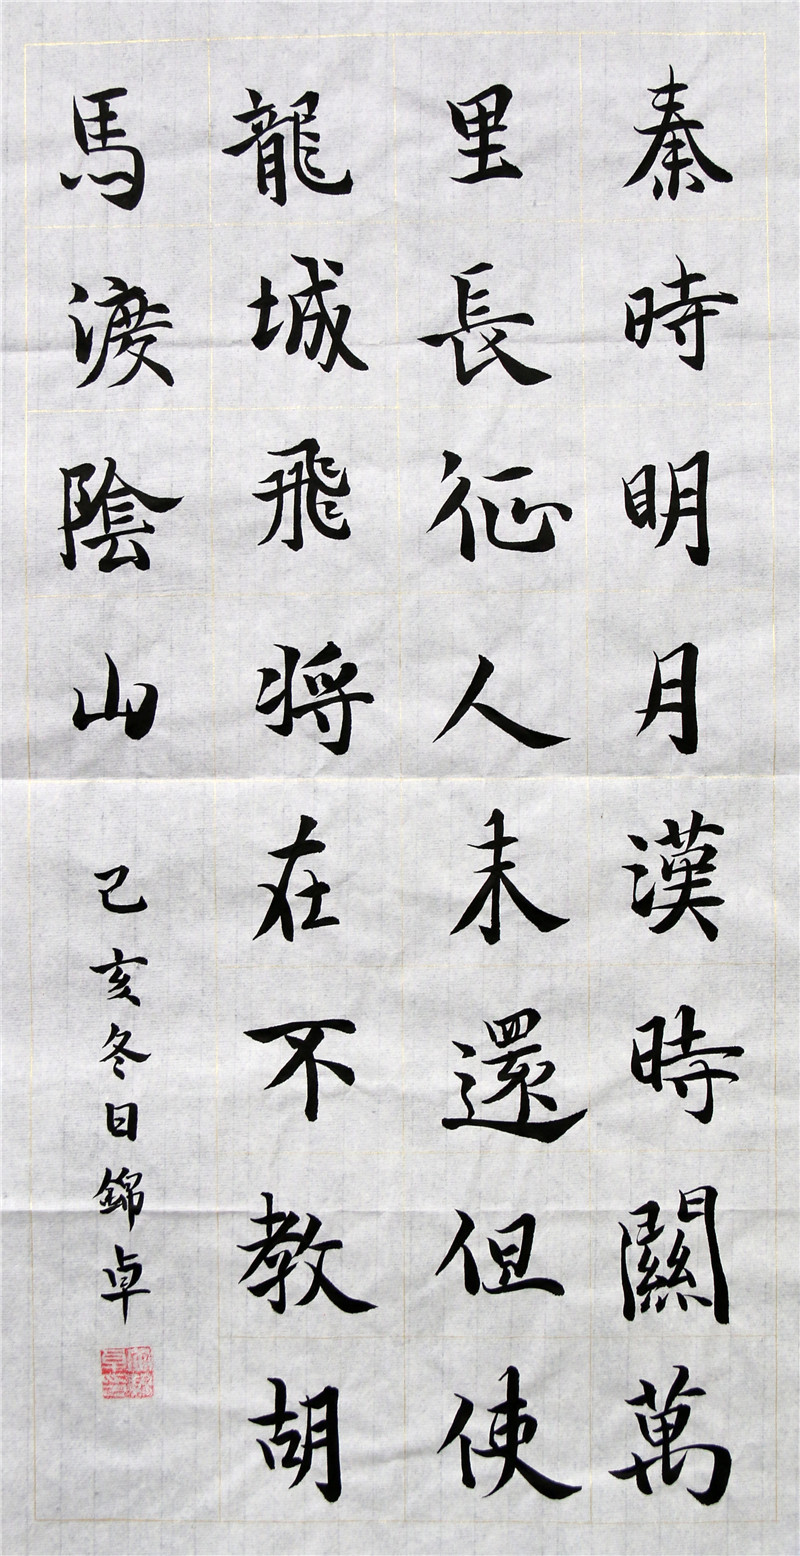 秦時明月漢時關萬
里長征人未還但使
龍城飛将在不教胡
馬渡陰山
己亥冬日錦卓